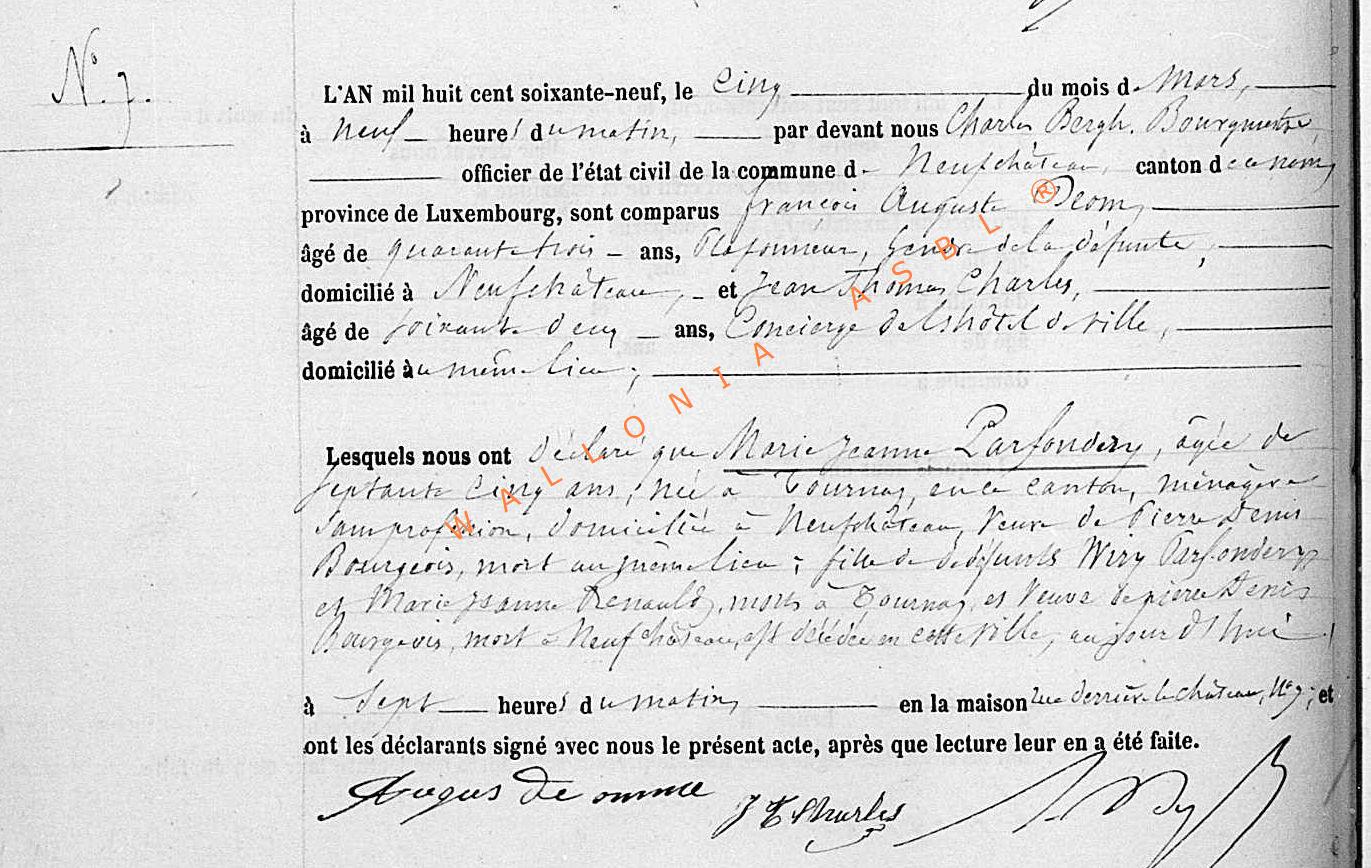 N° 7.
L'AN mil huit cent soixante-neuf, le Cinq du mois de Mars,
à Neuf heures du matin, par devant nous Charles Bergh. Bourgmestre,
officier de l'état civil de la commune de Neufchâteau, canton de ce nom,
province de Luxembourg, sont comparus françois Auguste Deom,
âgé de quarante trois ans, Plafonneur, Gendre de la défunte,
domicilié à Neufchâteau, et Jean Thomas Charles,
âgé de soixante deux ans, Concierge de l'hôtel de ville,
domicilié au même lieu,
Lesquels nous ont déclaré que Marie Jeanne Parfondery, âgée de
septante cinq ans, née à Tournay, en ce canton, ménagère
sans profession, domiciliée à Neufchâteau, Veuve de Pierre Denis
Bourgeois, mort au même lieu; fille de défunts Wiry Parfondery
et Marie Jeanne Renauld, morts à Tournay, et Veuve de pierre Denis
Bourgeois, mort à Neufchâteau, est décédée en cette ville, aujourd'hui
à Sept heures du matin, en la maison rue derrière le château, N° 9; et
ont les déclarants signé avec nous le présent acte, après que lecture leur en a été faite.
Augus De omme J T Charles
WALLONIA ASBL ®